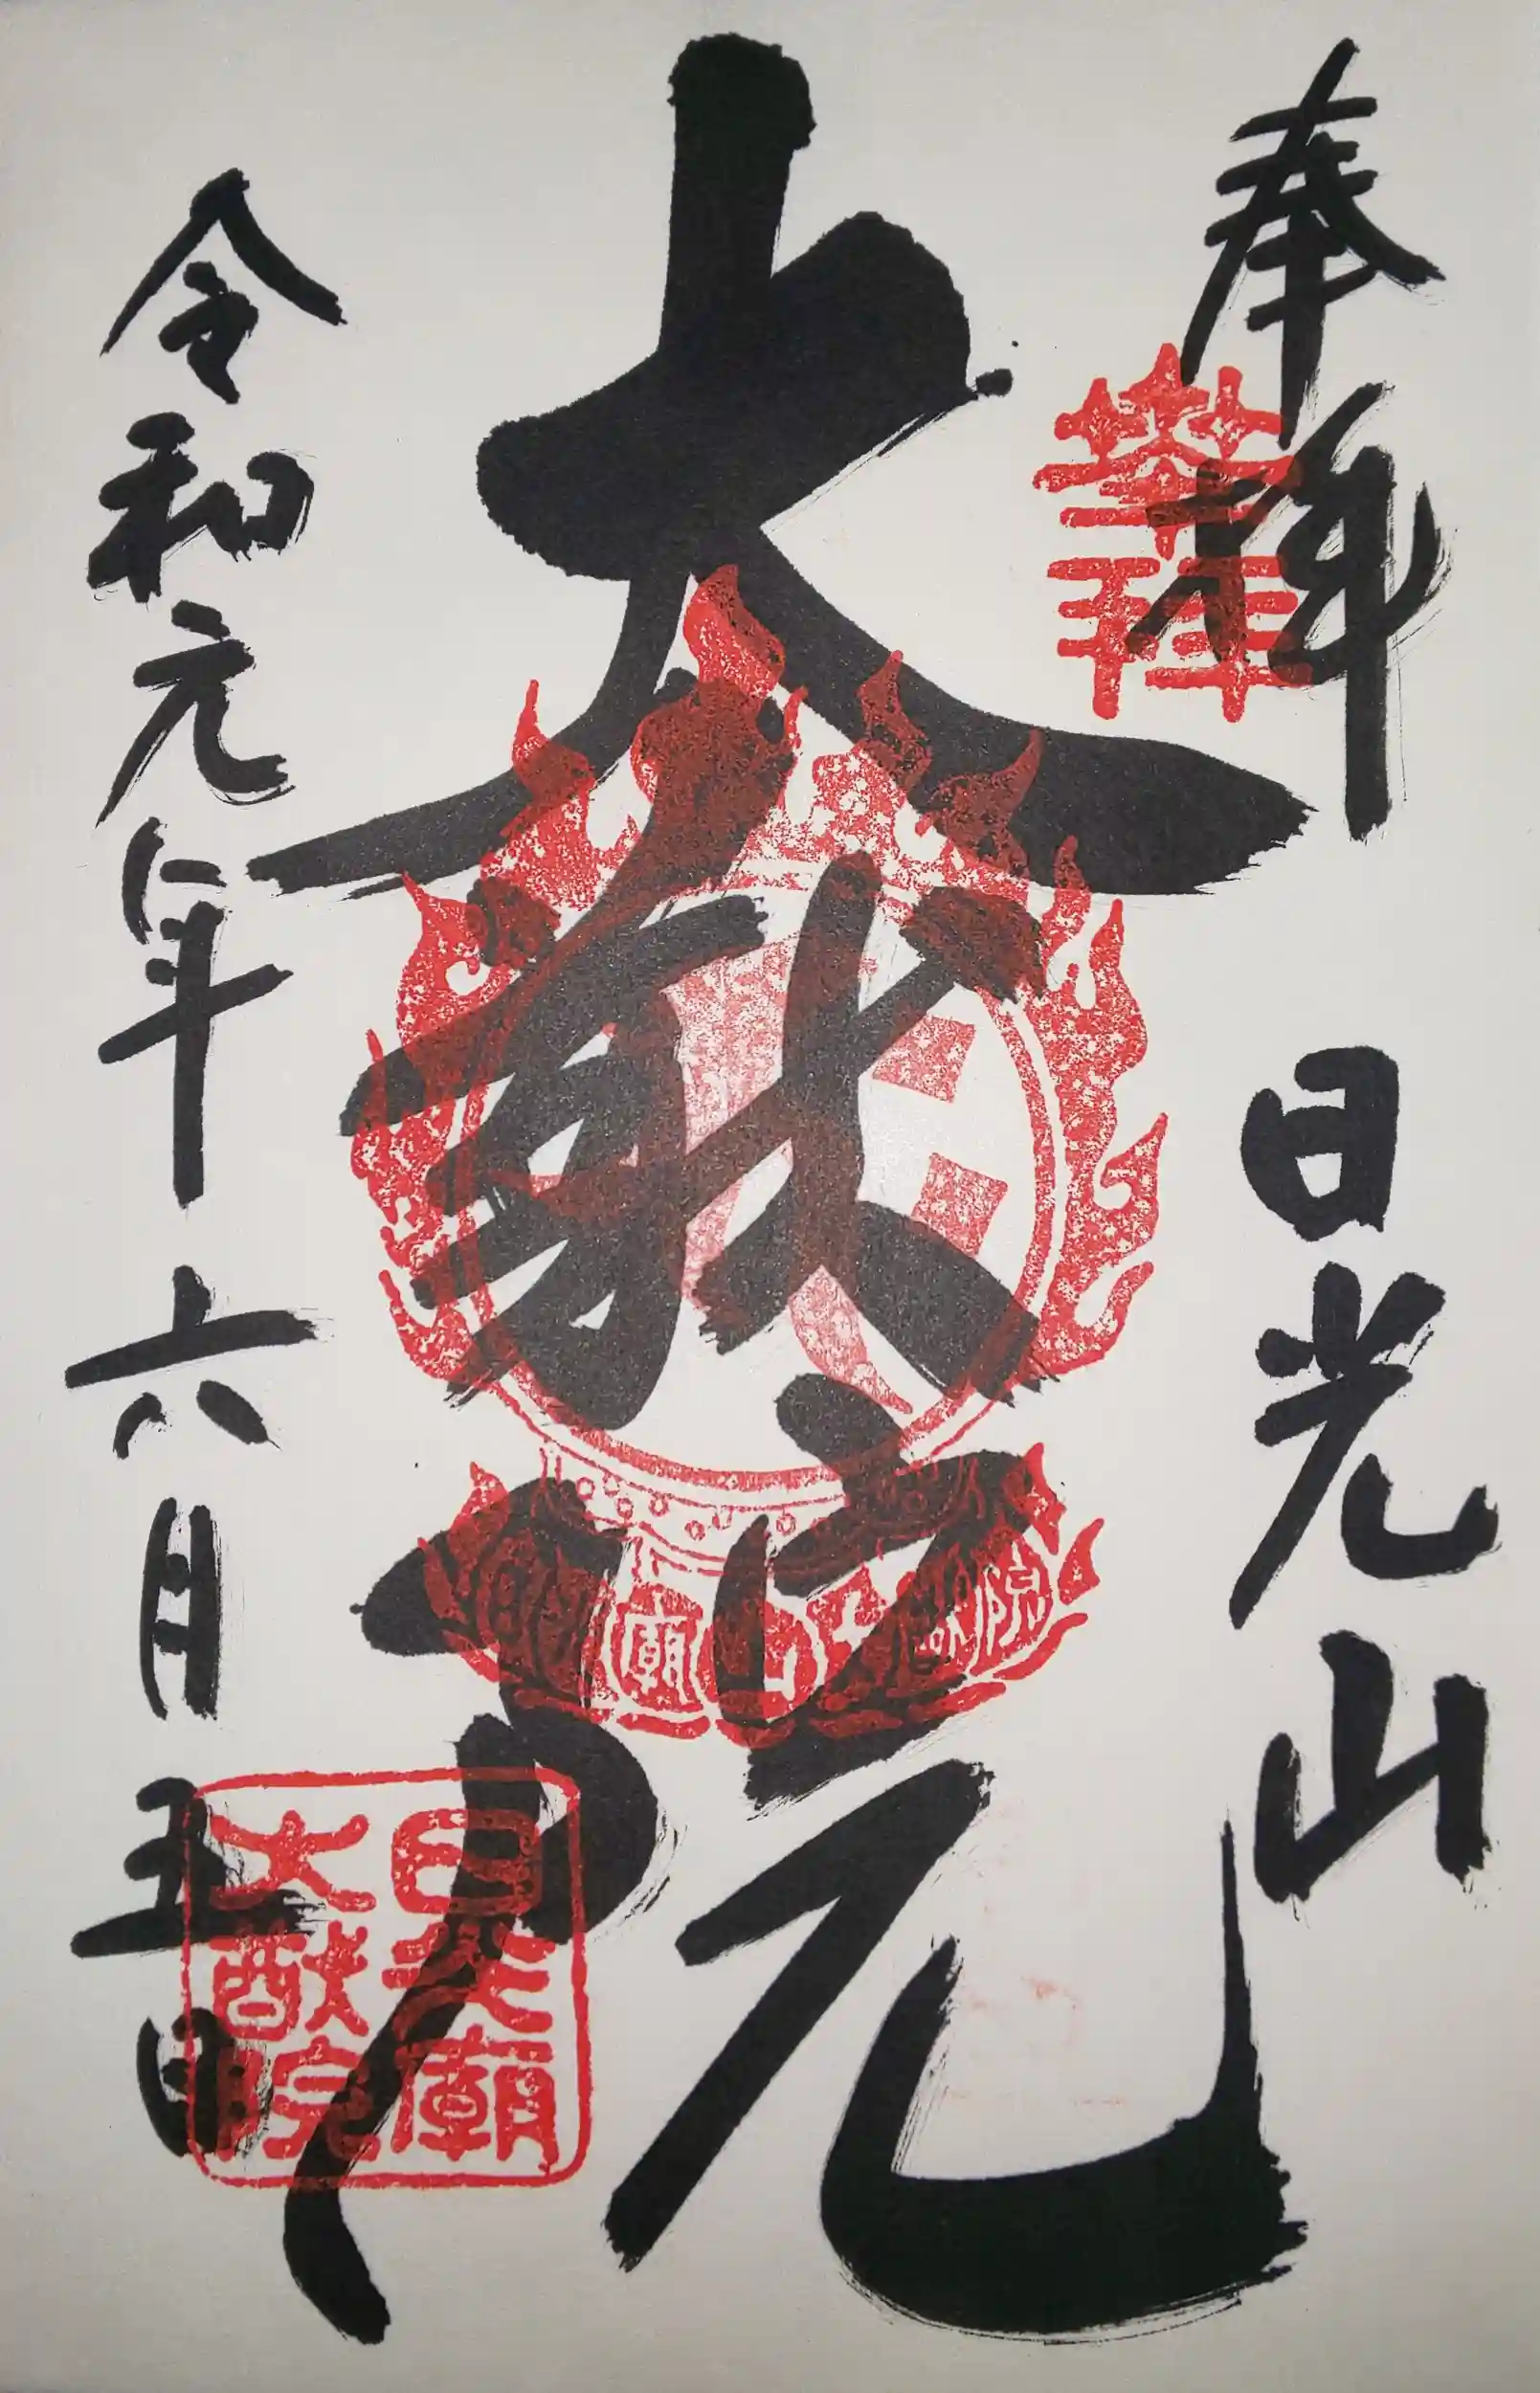 奉拝
奉拝
日光山
大猷院
廟
院
日光廟
大猷院
令和元年六月五日